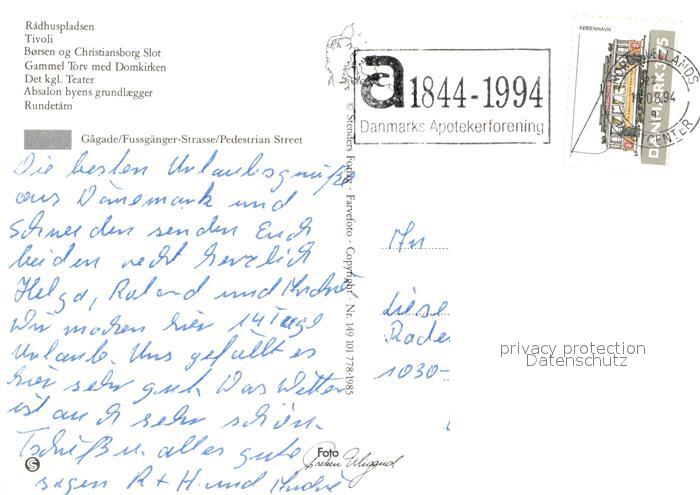 Rådhuspladsen
Tivoli
Børsen og Christiansborg Slot
Gammel Torv med Domkirken
Det kgl. Teater
Absalon byens grundlægger
Rundetårn
Gågade/Fussgänger-Strasse/Pedestrian Street
Die besten Urlaubsgrüße
aus Dänemark und
Schweden senden Euch
beiden recht herzlich
Helga, Roland und André
Wir machen hier 14 Tage
Urlaub. Uns gefällt es
hier sehr gut. Das Wetter
ist auch sehr schön.
Tschüß u. alles gute
sagen R + H. und André
© Stenders Forlag - Farvefoto - Copyright - Nr. 149 101 778-1985
Foto
a 1844-1994
Danmarks Apotekerforening
KØBENHAVN
DANMARK 3.75
08.94
CENTER
An
Liese
Rade
1030-
privacy protection
Datenschutz